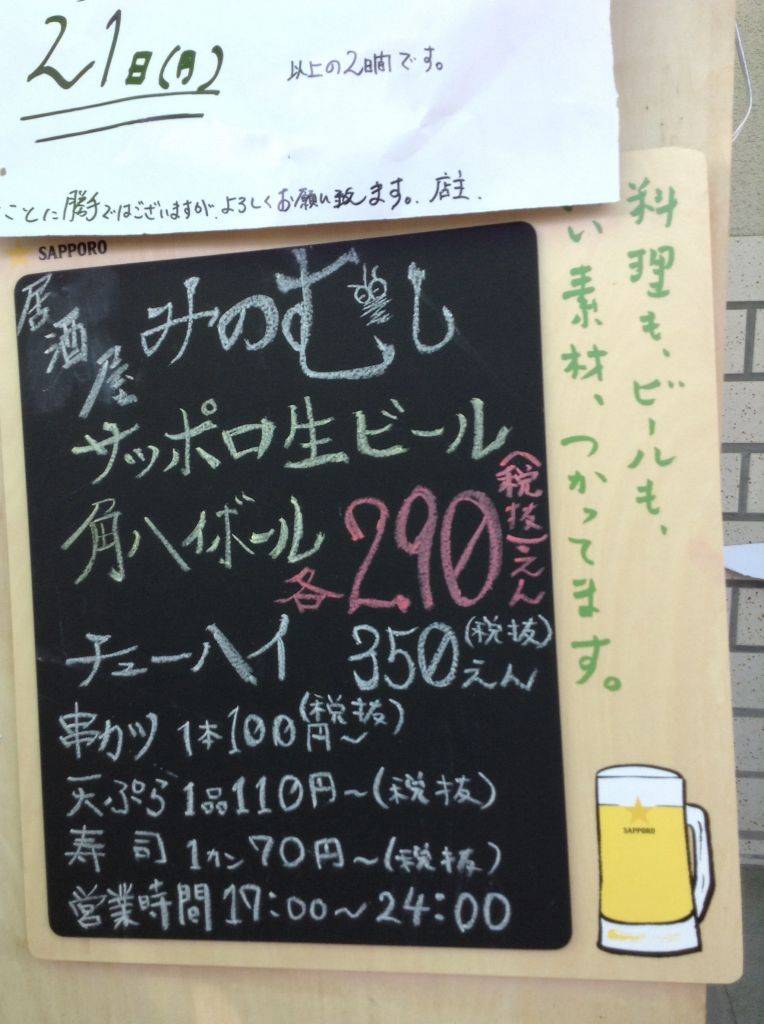 21日(月)
以上の2日間です。
ことに勝手ではございますが、よろしくお願い致します。店主.
SAPPORO
居酒屋 みのむし
サッポロ生ビール
角ハイボール
各290えん(税抜)
チューハイ 350えん(税抜)
串カツ 1本100円~(税抜)
天ぷら 1品110円~(税抜)
寿司 1カン70円~(税抜)
営業時間 17:00~24:00
料理も、ビールも、
い素材、つかってます。
SAPPORO